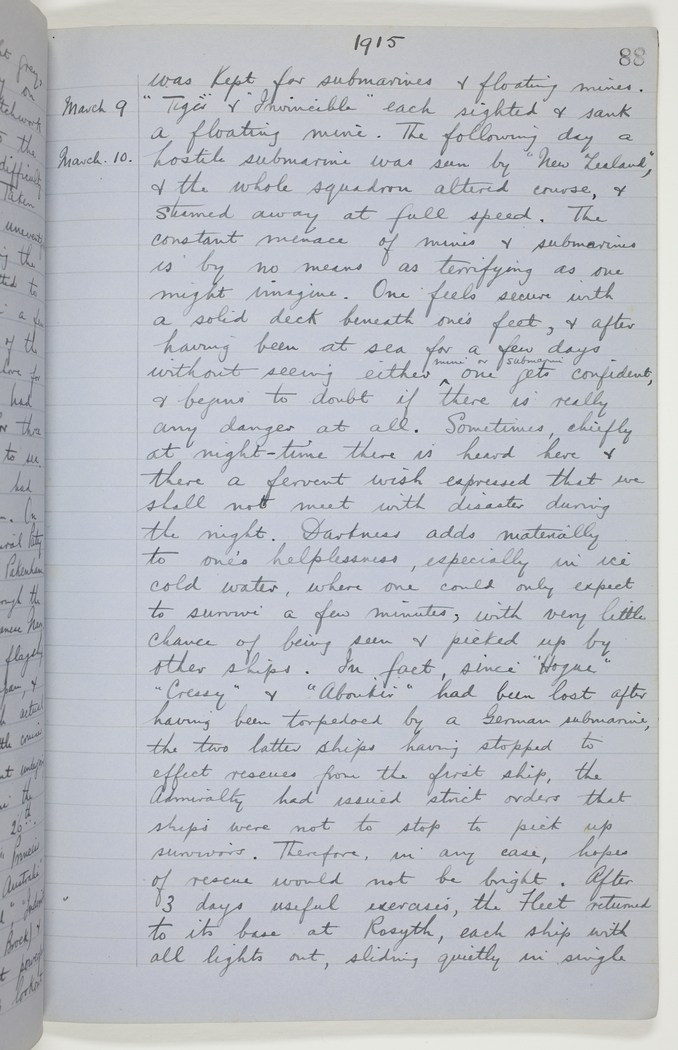 1915
88
was kept for submarines & floating mines.
March 9 "Tiger" & "Invincible" each sighted & sank
a floating mine. The following day a
March. 10. hostile submarine was seen by "New Zealand",
& the whole squadron altered course, &
steamed away at full speed. The
constant menace of mines & submarines
is by no means as terrifying as one
might imagine. One feels secure with
a solid deck beneath one's feet, & after
having been at sea for a few days
mine or submarine
without seeing either ^ one gets confident,
& begins to doubt if there is really
any danger at all. Sometimes, chiefly
at night-time there is heard here &
there a fervent wish expressed that we
shall not meet with disaster during
the night. Darkness adds materially
to one's helplessness, especially in ice
cold water, where one could only expect
to survive a few minutes, with very little
chance of being seen & picked up by
other ships. In fact, since "Hogue"
"Cressy" & "Aboukir" had been lost after
having been torpedoed by a German submarine,
the two latter ships having stopped to
effect rescues from the first ship, the
Admiralty had issued strict orders that
ships were not to stop to pick up
survivors. Therefore, in any case, hopes
of rescue would not be bright. After
" 3 days useful exercises, the Fleet returned
to its base at Rosyth, each ship with
all lights out, sliding quietly in single